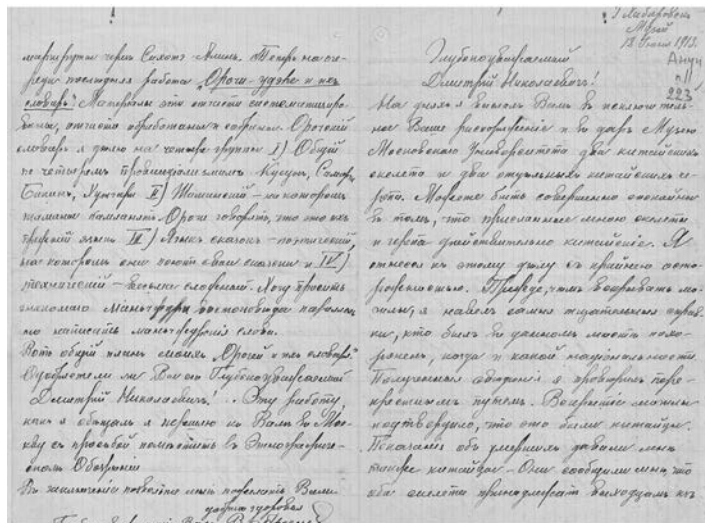 маршруты через Сихотэ-Алинь. Теперь на оче-
реди последняя работа „Орочи-удэхе и их
словарь". Матерьялы эти отчасти систематизиро-
ваны, отчасти обработаны и собраны. Орочский
словарь я делю на четыре группы I) Общій
по четыремъ провинціализмамъ - Кусунъ, Самарга
Бикинъ, Хунгари II) Шаманскій - на которомъ
шаманы камлаютъ. Орочи говорятъ, что это ихъ
древній языкъ III) Языкъ сказокъ - поэтическій,
на которомъ они поютъ свои сказки и IV)
техническій - весьма словъ. Хочу просить
знакомаго Маньчжура востоковѣда
но написать маньчжурскія слова.
Вотъ общій планъ моихъ „Орочей и ихъ словаря"
Одобряете ли Вы его Глубокоуважаемый
Дмитрій Николаевичъ! . Эту работу,
какъ я обѣщалъ я пришлю къ Вамъ въ Мос-
кву съ просьбой помѣстить въ Этнографиче-
скомъ Обозрѣніи
Въ заключеніе позвольте мнѣ пожелать Вамъ
добраго здоровья
Г. Хабаровскъ
Музей
1913.
Ануч
п 11
223
Глубокоуважаемый
Дмитрій Николаевичъ!
На дняхъ я выслалъ Вамъ въ исключитель-
ное Ваше распоряженіе и въ даръ Музею
Московскаго Университета два китайскихъ
скелета и два отдѣльныхъ китайскихъ че-
репа. Можете быть совершенно спокойны
въ томъ, что присланные мною скелеты
и черепа дѣйствительно китайскіе. Я
отнесся къ этому дѣлу съ крайнею осто-
рожностью. Прежде, чѣмъ вскрывать мо-
гилы, я навелъ самыя тщательныя справ-
ки, кто былъ въ данномъ мѣстѣ похо-
роненъ, когда и какой національности.
Полученныя свѣдѣнія я провѣрилъ пере-
крестнымъ путемъ. Вскрытіе могилъ
подтвердило, что это были китайцы.
Показанія объ умершихъ давали мнѣ
также китайцы - Они сообщили мнѣ, что
оба скелета принадлежатъ выходцамъ изъ